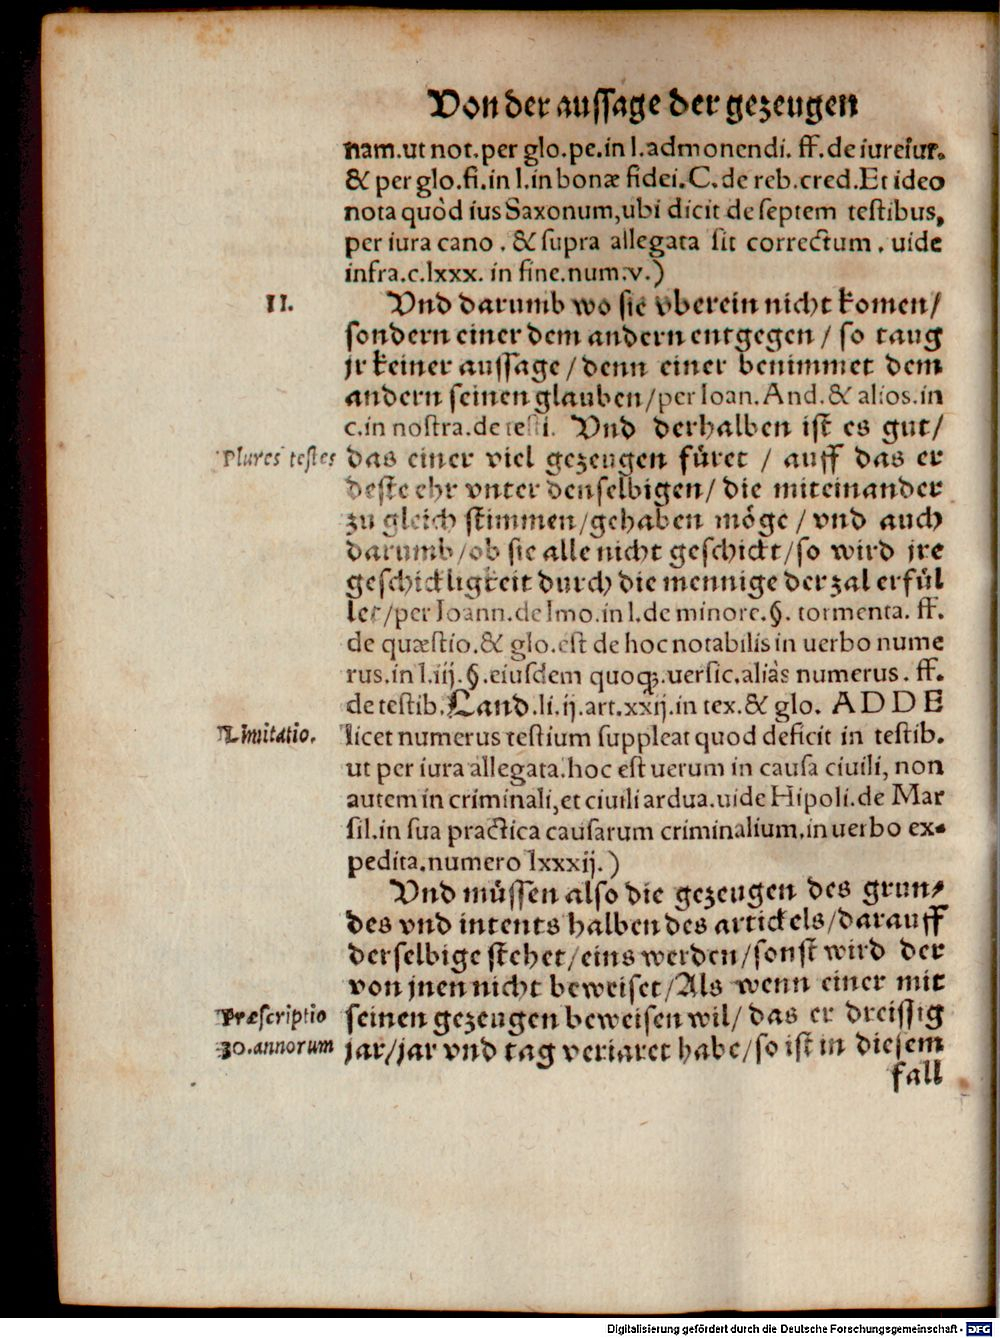 Von der aussage der gezeugen
nam.ut not.per glo.pe.in l.admonendi. ff.de iureiur.
& per glo.fi.in l.in bonæ fidei.C.de reb.cred.Et ideo
nota quòd ius Saxonum,ubi dicit de septem testibus,
per iura cano . & supra allegata sit correctum . uide
infra.c.lxxx. in fine.num.v.)
II.
Vnd darumb wo sie vberein nicht komen/
sondern einer dem andern entgegen / so taug
jr keiner aussage / denn einer benimmet dem
andern seinen glauben/per Ioan.And.& alios.in
c.in nostra.de testi. Vnd derhalben ist es gut/
Plures testes
das einer viel gezeugen füret / auff das er
deste ehr vnter denselbigen/ die miteinander
zu gleich stimmen/gehaben möge / vnd auch
darumb/ob sie alle nicht geschickt/so wird jre
geschickligkeit durch die mennige der zal erfül
let/per Ioann.de Imo.in l.de minore.§. tormenta. ff.
de quæstio.& glo.est de hoc notabilis in uerbo nume
rus.in l.iij.§.eiusdem quoqꝫ.uersic.aliàs numerus. ff.
de testib.Land.li.ij.art.xxij.in tex.& glo. ADDE
Limitatio.
licet numerus testium suppleat quod deficit in testib.
ut per iura allegata.hoc est uerum in causa ciuili, non
autem in criminali,et ciuili ardua.uide Hipoli.de Mar
sil.in sua practica causarum criminalium.in uerbo ex-
pedita.numero lxxxij.)
Vnd müssen also die gezeugen des grun-
des vnd intents halben des artickels/darauff
derselbige stehet/eins werden/sonst wird der
von jnen nicht beweiset/Als wenn einer mit
Præscriptio
seinen gezeugen beweisen wil/ das er dreissig
30.annorum
jar/jar vnd tag veriaret habe/so ist in diesem
fall
Digitalisierung gefördert durch die Deutsche Forschungsgemeinschaft - DFG